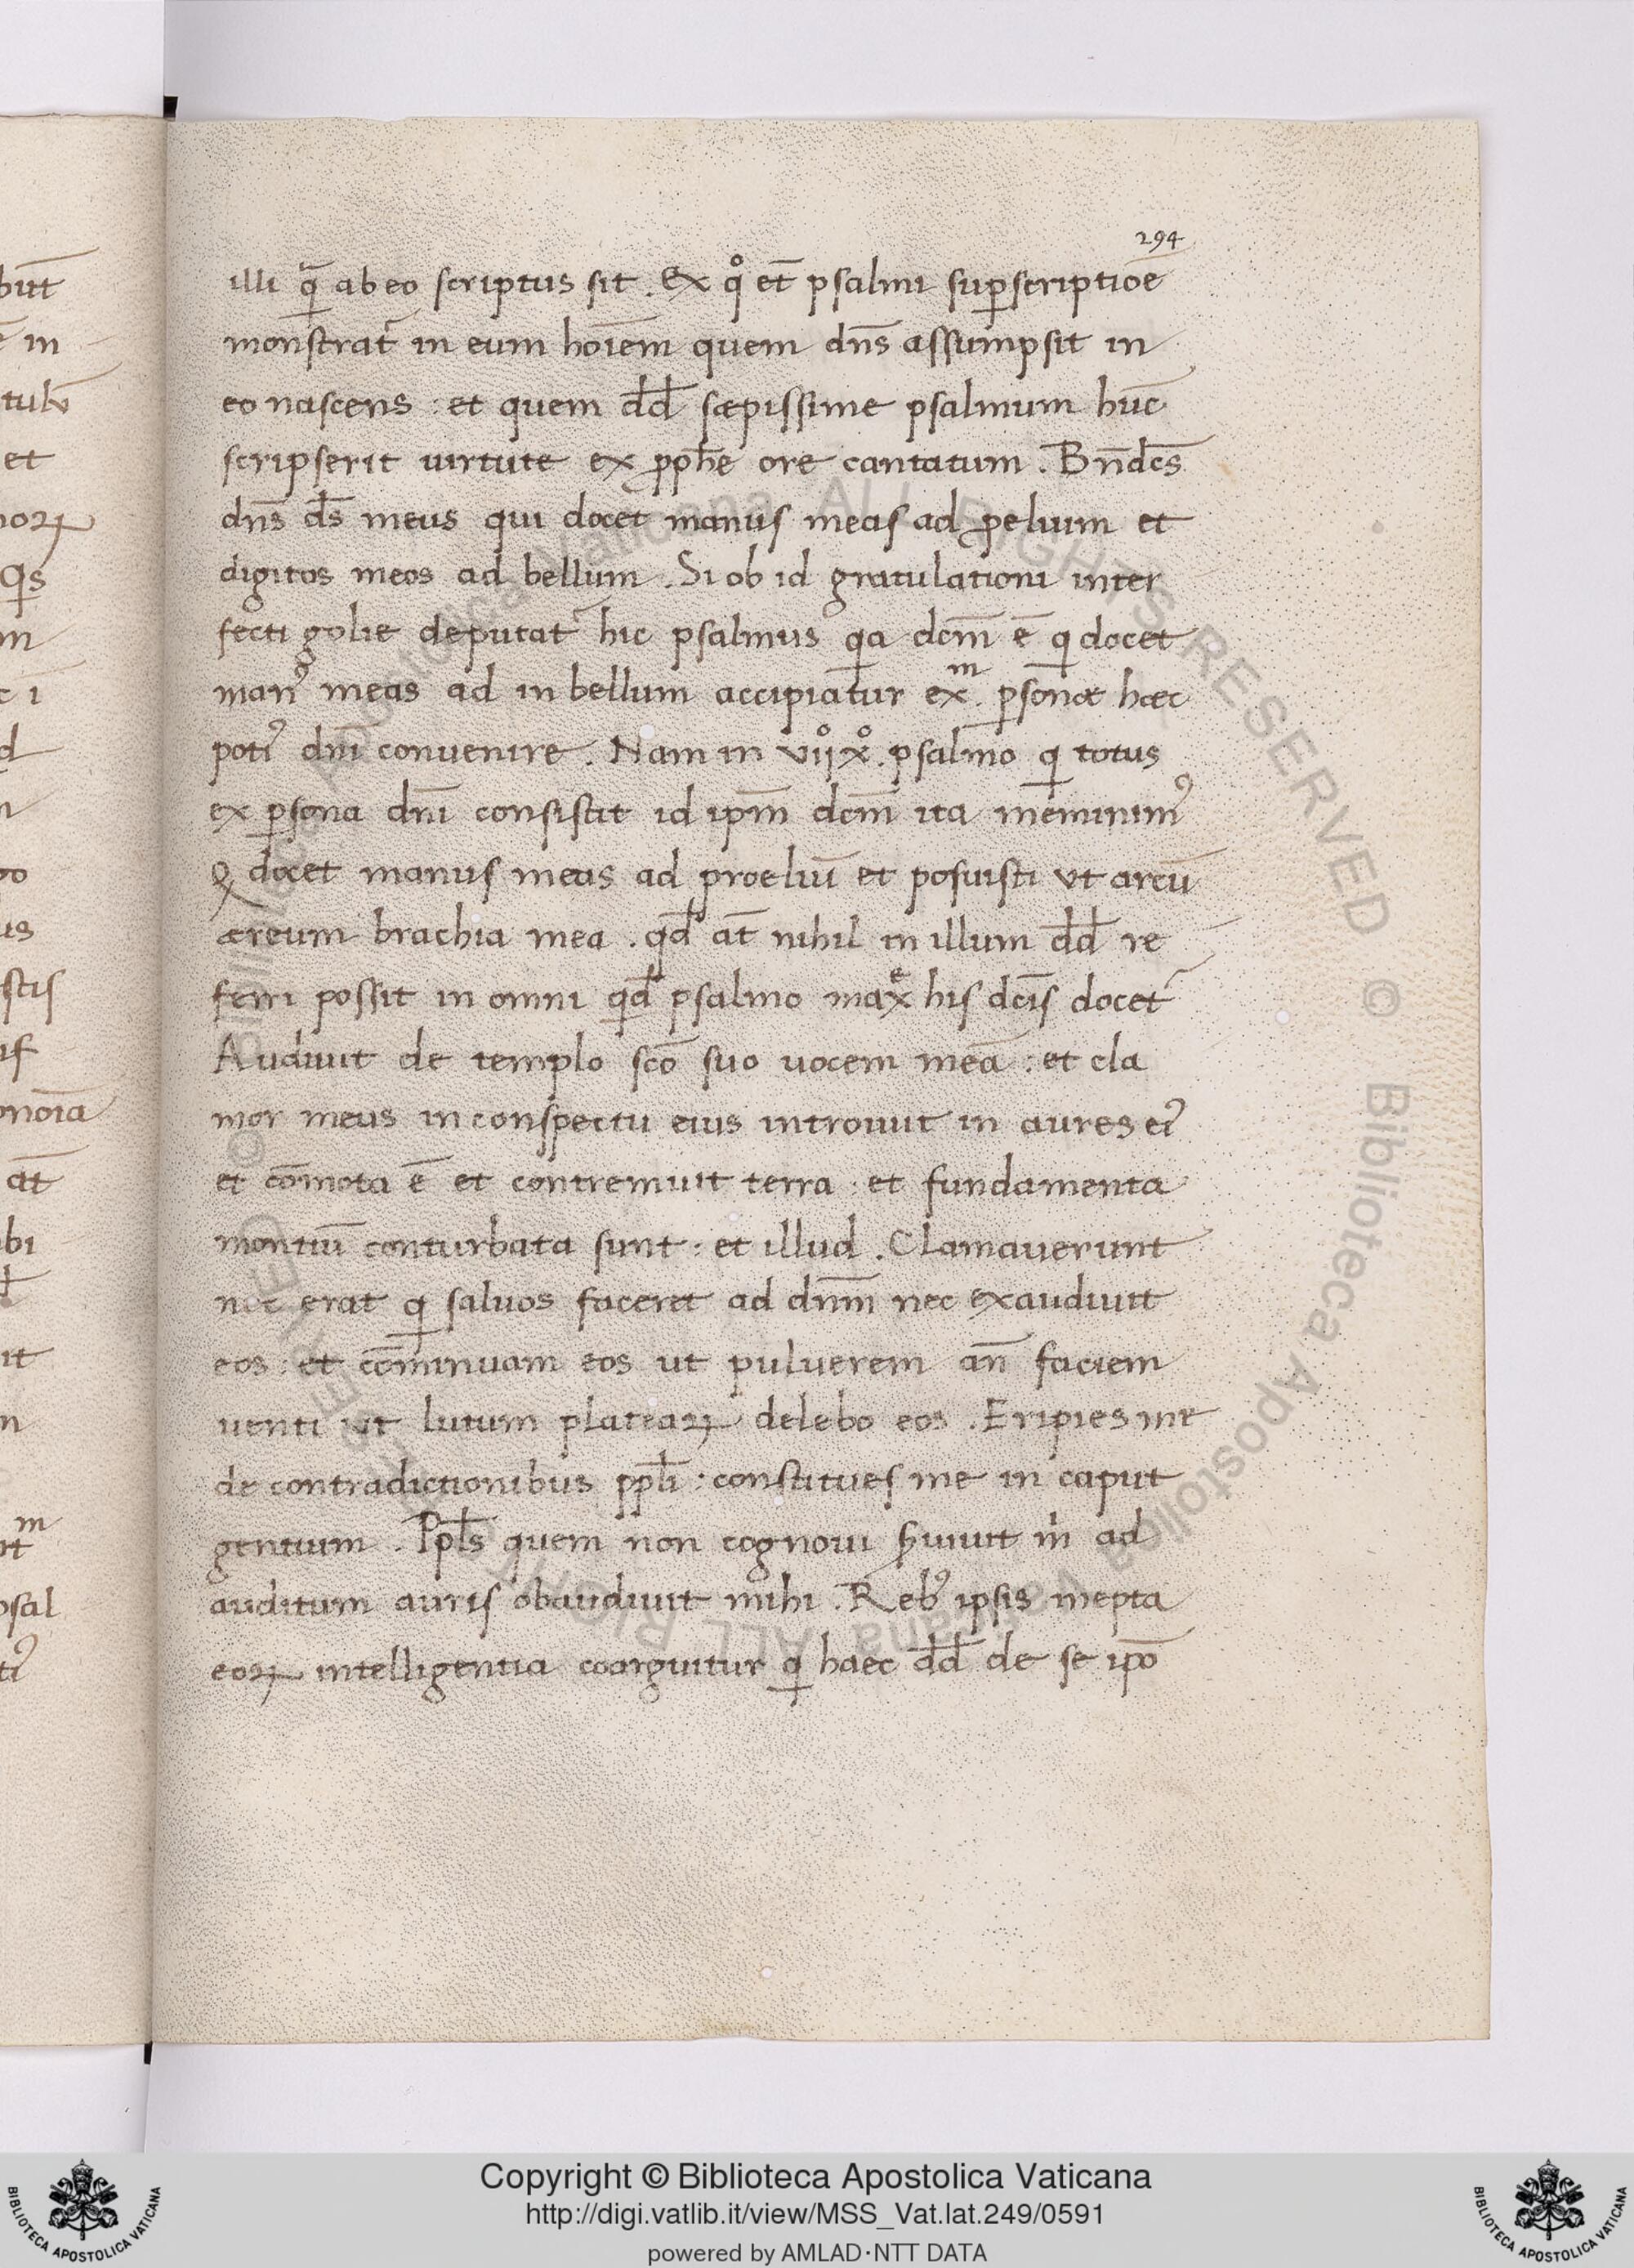 294
illi q̄ ab eo scriptus sit. Ex q̊ et̄ psalmi suꝑscriptioē
monstrat᷑ in eum hoīem quem dn̄s assumpsit in
eo nascens : et quem dd̄ sæpissime psalmum hūc
scripserit uirtute ex ꝓph̄e ore cantatum. Bn̄dc̄s
dn̄s ds̄ meus qui docet manus meas ad p̱elium et
digitos meos ad bellum. Si ob id gratulationi inter
fecti golie deputat᷑ hic psalmus qa dcm̄ ē q docet
manꝰ meas ad in bellum accipiatur exᵐ. ꝑsonæ hæc
potiꝰ dn̄i conuenire. Nam in vijx̊. psalmo q totus
ex ꝑsona dn̄i consistit id ipm̄ dcm̄ ita meminimꝰ
Q docet manus meas ad proeliū et posuisti vt arcū
æreum brachia mea. qd̄ at̄ nihil in illum dd̄ re
ferri possit in omni qd̄ psalmo maxͤ his dcīs docet᷑
Audiuit de templo scō suo uocem meā : et cla
mor meus in conspectu eius introiuit in aures eiꝰ
et cōmota ē et contremuit terra : et fundamenta
montiū conturbata sunt : et illud. Clamauerunt
nec erat q saluos faceret ad dnm̄ nec exaudiuit
eos : et cōminuam eos ut puluerem an̄ faciem
uenti ut lutum plateaꝝ delebo eos. Eripies me
de contradictionibus ppl̄i : constitues me in caput
gentium. Ppl̄s quem non cognoui ẜuiuit m̍ ad
auditum auris obaudiuit mihi. Rebꝰ ipsis inepta
eoꝝ intelligentia coarguitur q haec dd̄ de se ip̄o
Copyright © Biblioteca Apostolica Vaticana
http://digi.vatlib.it/view/MSS_Vat.lat.249/0591
powered by AMLAD·NTT DATA